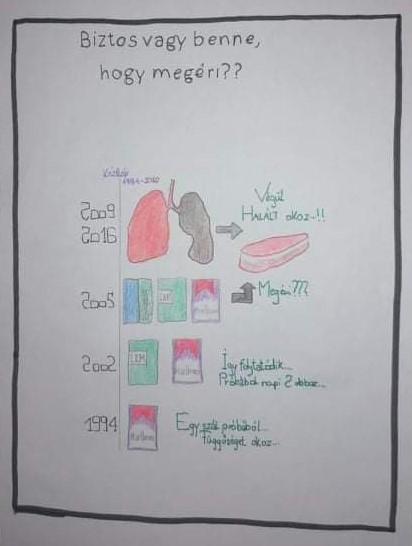 Biztos vagy benne,
hogy megéri??
1994-2010
2009
2016
Végül
HALÁLT okoz...!!
2005
Megéri???
2002
L&M
Így folytatódik...
napi 2 doboz...
1994
Marlboro
Egy szál próbából...
függőséget okoz...